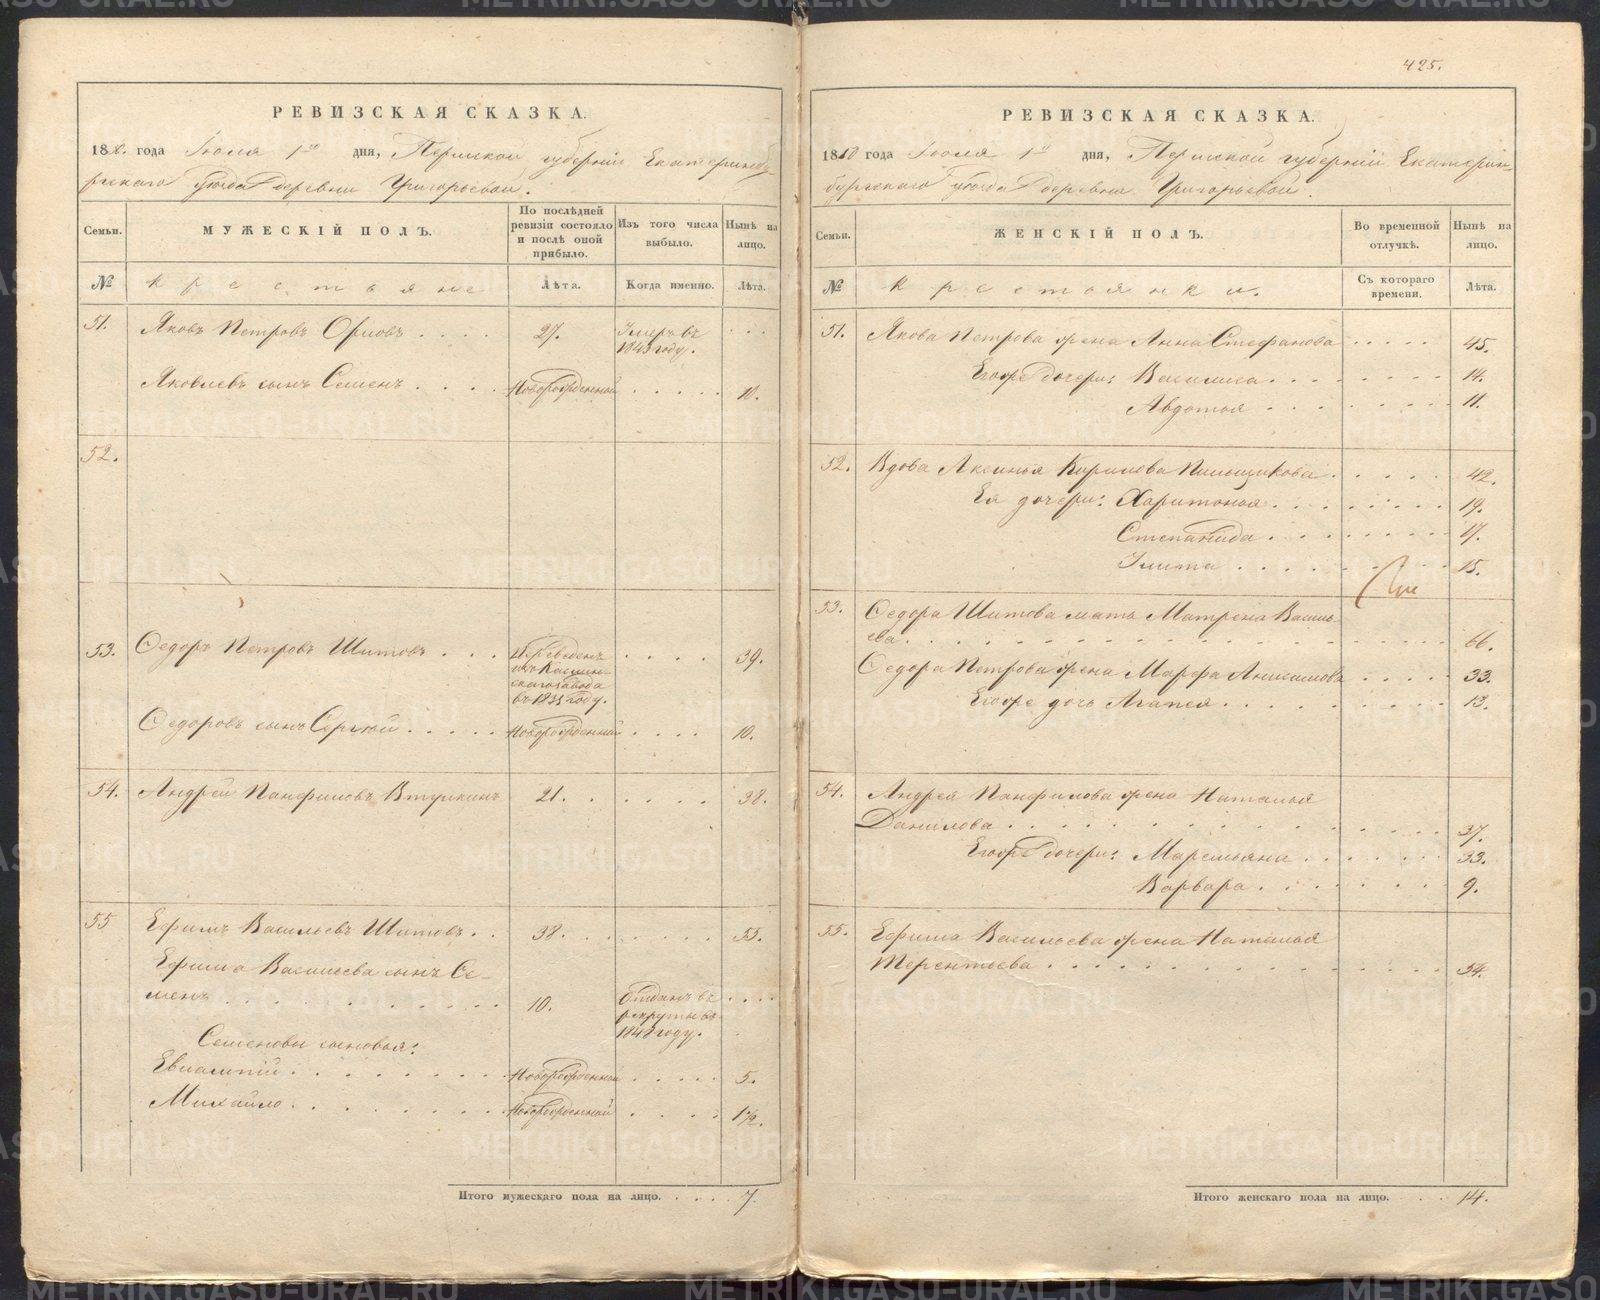 425.
РЕВИЗСКАЯ СКАЗКА.
1850 года Июля 1го дня, Пермской губерніи Екатеринбу-
ргскаго уѣзда деревни Григорьевой.
Семьи.
МУЖЕСКІЙ ПОЛЪ.
По послѣдней ревизіи состояло и послѣ оной прибыло.
Изъ того числа выбыло.
Нынѣ на лицо.
№
крестьяне
Лѣта.
Когда именно.
Лѣта.
51. Яковъ Петровъ Орловъ . . . . 27. Умеръ въ . . .
1843 году.
Яковлевъ сынъ Семенъ . . . . Новорожденной . . . . . 10.
52.
53. Ѳедоръ Петровъ Шитовъ . . . Переведенъ . . . . 39.
изъ Каслин-
скаго завода
въ 1835 году.
Ѳедоровъ сынъ Сергѣй . . . . . Новорожденной . . . . 10.
54. Андрей Панфиловъ Втулкинъ 21. . . . . . 38.
55 Ефимъ Васильевъ Шитовъ . . 38. . . . . . . . 55.
Ефима Васильева сынъ Се-
менъ . . . . . . . . . . . . 10. Отданъ въ . . . .
рекруты въ
1848 году.
Семеновы сыновья:
Евлампій . . . . . . . . . Новорожденной . . . . . 5.
Михайло . . . . . . . . . Новорожденной . . . . 1½.
Итого мужескаго пола на лицо. . . . . 7.
РЕВИЗСКАЯ СКАЗКА.
1850 года Июля 1го дня, Пермской губерніи Екатерин-
бургскаго уѣзда деревни Григорьевой.
Семьи.
ЖЕНСКІЙ ПОЛЪ.
Во временной отлучкѣ.
Нынѣ на лицо.
№
крестьянки.
Съ котораго времени.
Лѣта.
51. Якова Петрова жена Анна Стефанова . . . . . 45.
Его же дочери: Василиса . . . . . . . . 14.
Авдотья . . . . . . . . . 11.
52. Вдова Аксинья Кирилова Пильщикова . . . . . 42.
Ея дочери: Харитонья . . . . . . . . 19.
Степанида . . . . . . . . . 17.
Улита . . . . . . . . . . 15.
53. Ѳедора Шитова мать Матрена Василь-
ева . . . . . . . . . . . . . . . . . 66.
Ѳедора Петрова жена Марфа Анисимова . . . . 33.
Его же дочь Агапея . . . . . . . . . . 13.
54. Андрея Панфилова жена Наталья
Данилова . . . . . . . . . . . . . . 37.
Его же дочери: Маремьяна . . . . . . . 33.
Варвара . . . . . . . . . 9.
55. Ефима Васильева жена Наталья
Терентьева . . . . . . . . . . . . . 54.
Итого женскаго пола на лицо. . . . 14.
METRIKI.GASO-URAL.RU